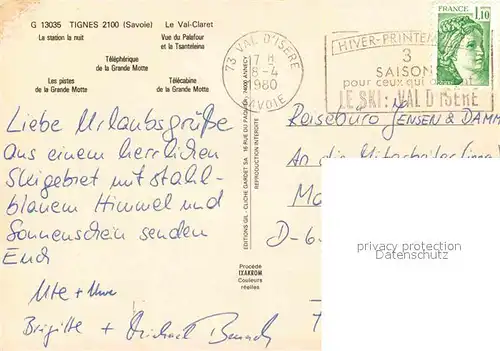 G 13035 TIGNES 2100 (Savoie) Le Val-Claret
La station la nuit
Vue du Palafour
et la Tsanteleina
Téléphérique
de la Grande Motte
Les pistes
de la Grande Motte
Télécabine
de la Grande Motte
Liebe Urlaubsgrüße
aus einem herrlichen
Skigebiet mit stahl-
blauem Himmel und
Sonnenschein senden
Euch
Ute + Uwe
Brigitte + Michael
EDITIONS GIL - CLICHE GARDET SA 16 RUE DU PAQUIER, 74000 ANNECY
REPRODUCTION INTERDITE
Procédé
IXAKROM
Couleurs
réelles
73 VAL D'ISERE
17 H
8-4
1980
SAVOIE
HIVER-PRINTEM
3
SAISON
pour ceux qui
LE SKI: VAL D'ISERE
FRANCE
1,10
Reisebüro JENSEN & DAMM
An die Mitarbeiter
D-6
privacy protection
Datenschutz